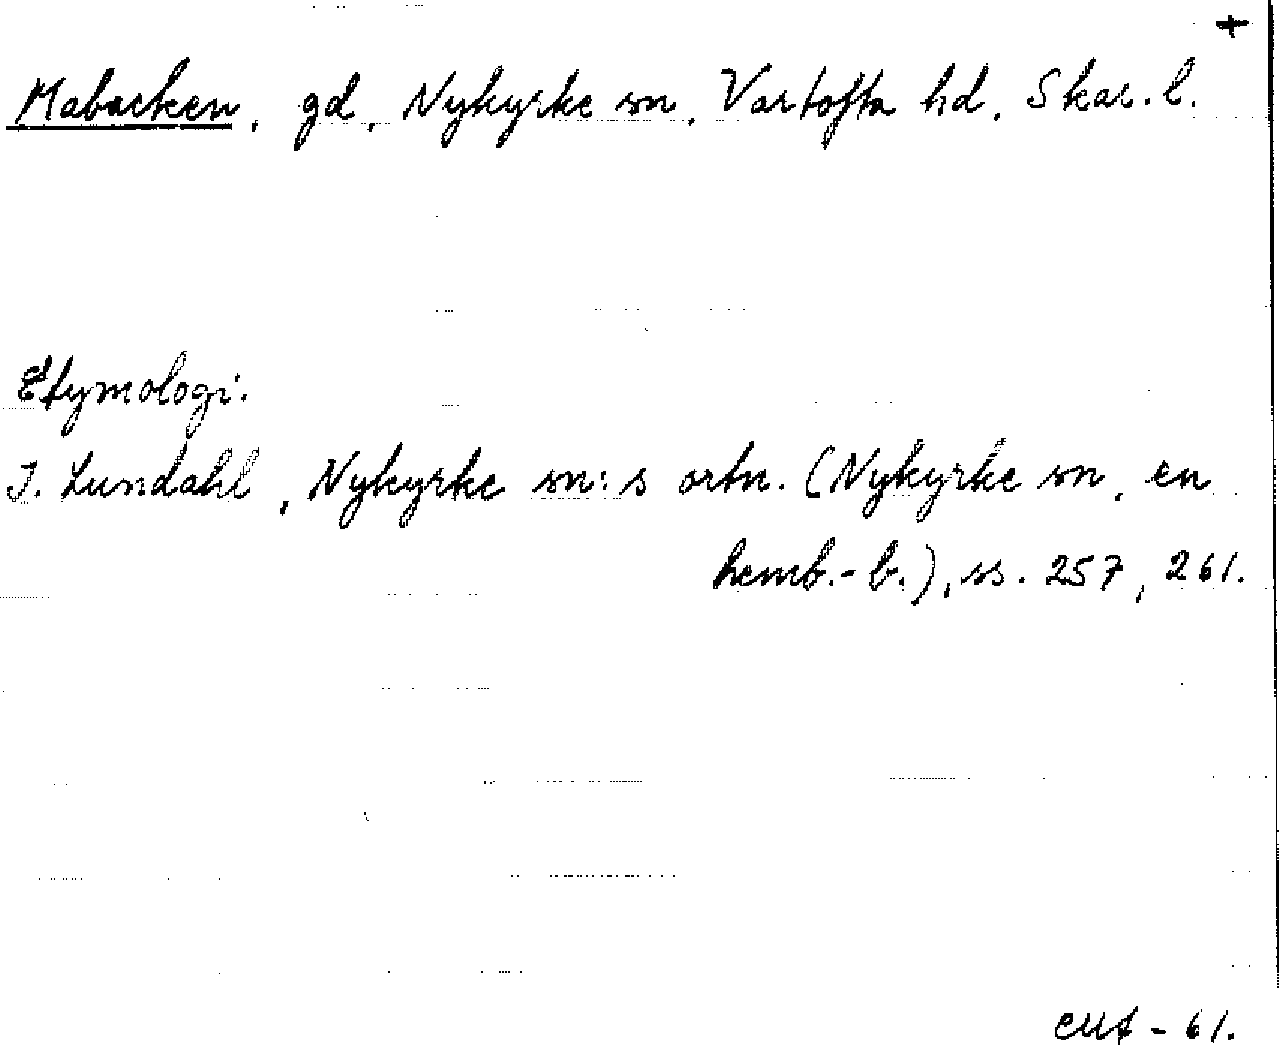 +
Mabacken, gd, Nykyrke sn, Vartofta hd, Skar. l.
Etymologi:
I. Lundahl, Nykyrke sn:s ortn. (Nykyrke sn, en
hemb.-b.), ss. 257, 261.
- 61.